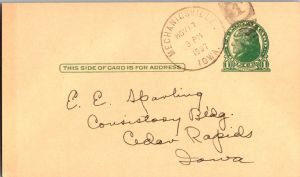 MECHANICSVILLE
NOV 17
3 PM
1927
IOWA.
THIS SIDE OF CARD IS FOR ADDRESS
E. E. Sparling
Consistory Bldg.
Cedar Rapids
Iowa